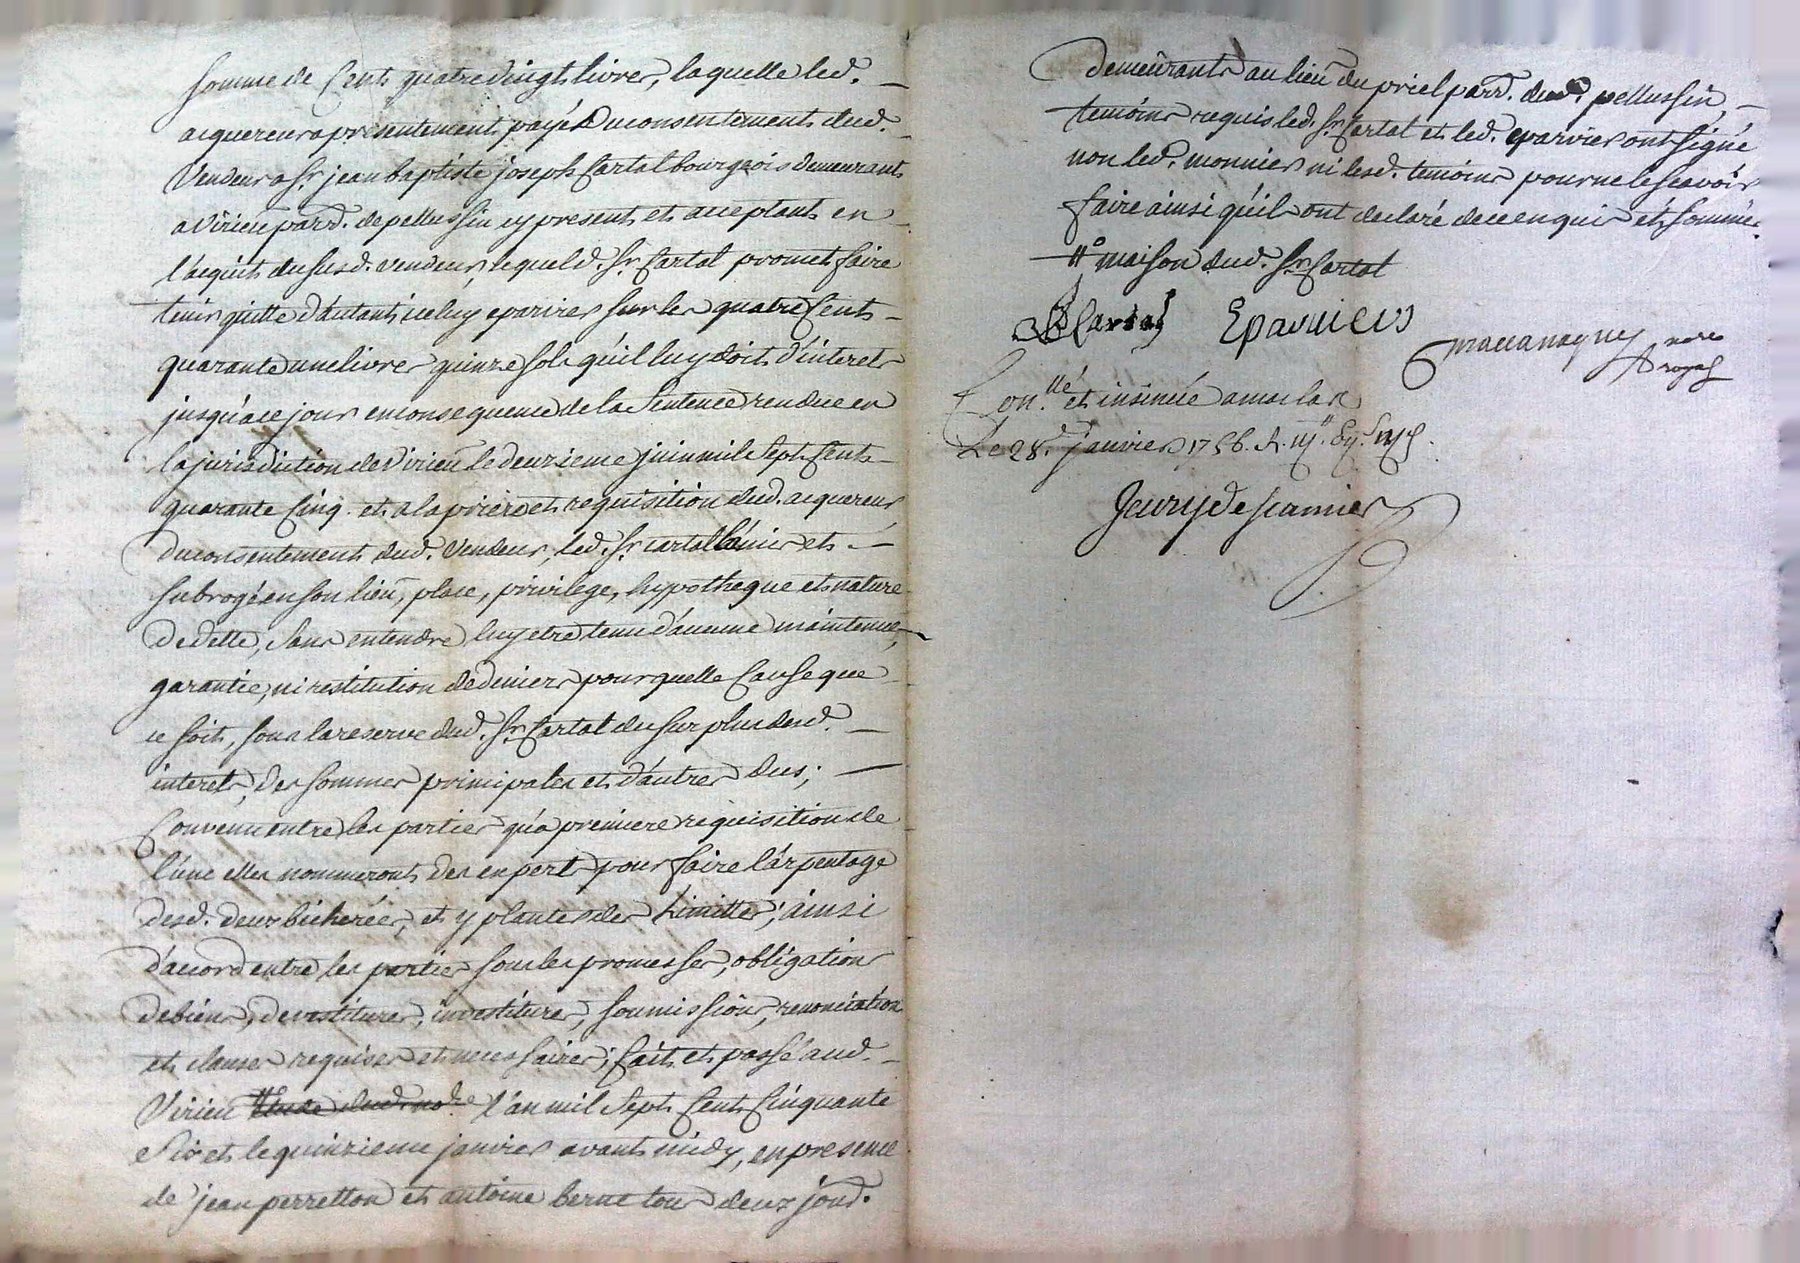 somme de Cent quatre vingt livres, laquelle led.
acquereur a presentement payé du consentement dud.
Vendeur a Sr. jean baptiste joseph Cartal bourgeois demeurant
a Virieu parr. de pellussin cy present et acceptant en
l'acquit du susd. vendeur, lequel d. Sr. Cartal promet faire
tenir quitte d'autant iceluy eparvier sur les quatre Cent
quarante une livres quinze sols qu'il luy doit d'interets
jusqu'a ce jour en consequence de la Sentence rendue en
la jurisdiction de Virieu le deuxieme juin mil Sept Cent
quarante Cinq. et a la priere et requisition dud. acquereur
du consentement dud. Vendeur, led. Sr. Cartal l'a mis et
subrogé en son lieu, place, privilege, hypotheque et nature
de dette, sans entendre luy etre tenu d'aucune maintenue,
garantie, ni restitution de deniers pour quelle Cause que
ce soit, sous la reserve dud. Sr. Cartal du surplus desd.
interets, des sommes principales et d'autres dus;
Convenu entre les parties qu'a premiere requisition de
l'une elles nommeront des expert pour faire l'arpentage
desd. deux bicherées, et y planter des Limittes; ainsi
d'accord entre les parties sous les promesses, obligation
de biens, devestitures, investitures, soumissions, renonciation
et clauses requises et necessaires; fait et passé aud.
Virieu l'an mil Sept Cent Cinquante
Six et le quinzieme janvier avant midy, en presence
de jean perretton et antoine berne tous deux jourd.
demeurants au lieu du priel parr. dud. pellussin,
temoins requis led. Sr. Cartal et led. eparvier ont signé
non led. monnier ni lesd. temoins pour ne le scavoir
faire ainsi qu'il ont declaré de ce enquis et sommés.
maison dud. Sr. Cartal
Cartal Eparvier
nore
royal
Con.llé et insinué
Le 28. janvier 1756. R.